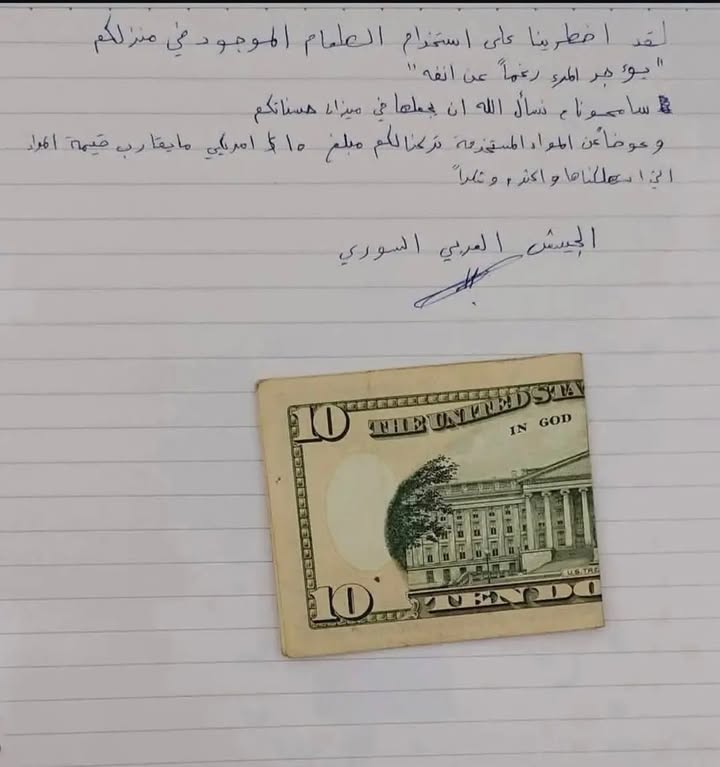 لقد اضطرينا على استخدام الطعام الموجود في منزلكم
"يؤجر المرء رغماً عن انفه"
سامحونا، نسأل الله ان يجعلها في ميزان حسناتكم
وعوضاً عن المواد المستخدمة تركنالكم مبلغ ١٥ $ امريكي مايقارب قيمة المواد
التي استهلكناها واكثر، وشكراً
الجيش العربي السوري
10 THE UNITED STA
IN GOD
U.S. TRE
10 TEN DO